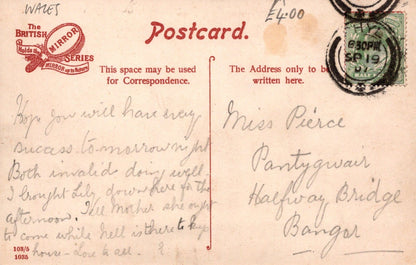 WALES
£4.00
The
BRITISH
MIRROR
SERIES
Postcard.
This space may be used
for Correspondence.
The Address only to be
written here.
8 30 PM
SP 19
Hope you will have every
success to-morrow night
Both invalids doing well.
I brought Lily down here for the
afternoon. Tell Mother she ought
to come while Nell is there to keep
house - Love to all. E.
Miss Pierce
Pantygwair
Halfway Bridge
Bangor
103/5
1035